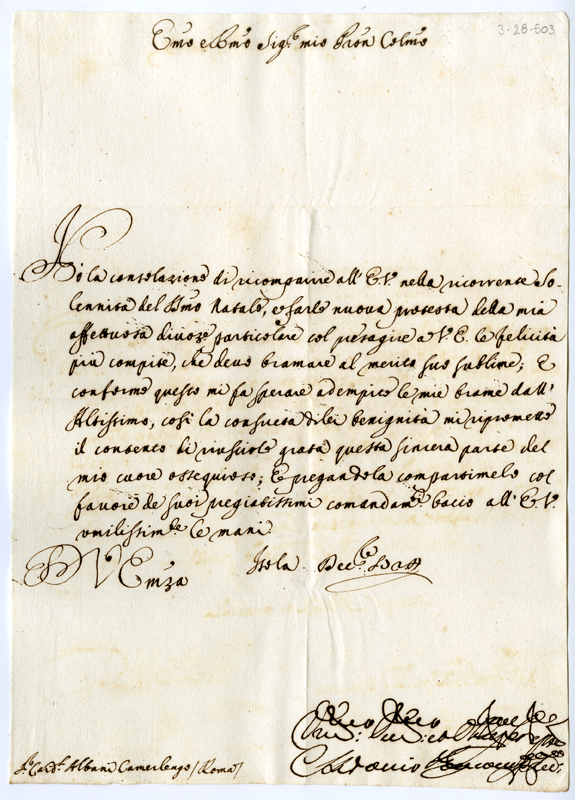 3-28-503
Emo e Rmo Sigre mio Pron Colmo
Hò la consolazione di ricomparire all' E.V. nella ricorrente So-
lennità del Smo Natale, e farle nuova protesta della mia
affettuosa divozne particolare col presagire a V.E. le felicità
più compite, che devo bramare al merito suo sublime; E
conforme questo mi fa sperare adempite le mie brame dall'
Altissimo, così la consueta di lei benignità mi ripromette
il contento di riuscirle grata questa sincera parte del
mio cuore ossequioso; E pregandola compartimelo col
favore de suoi pregiatissimi comandamti bacio all' E.V.
umilissimte le mani.
D V Emza
Isola Decre
Sr Cardl Albani Camerlengo / Roma /